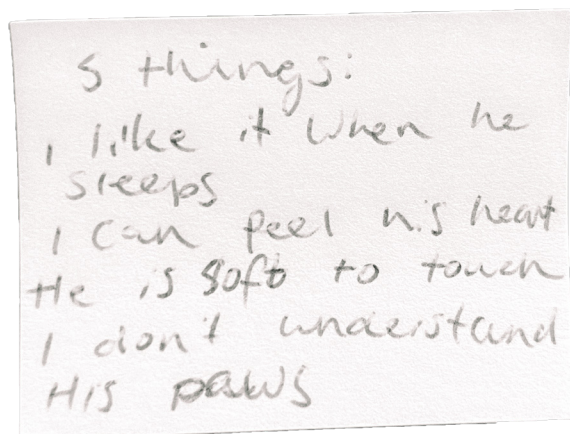 5 things:
I like it when he
sleeps
I can feel his heart
He is soft to touch
I don't understand
His paws